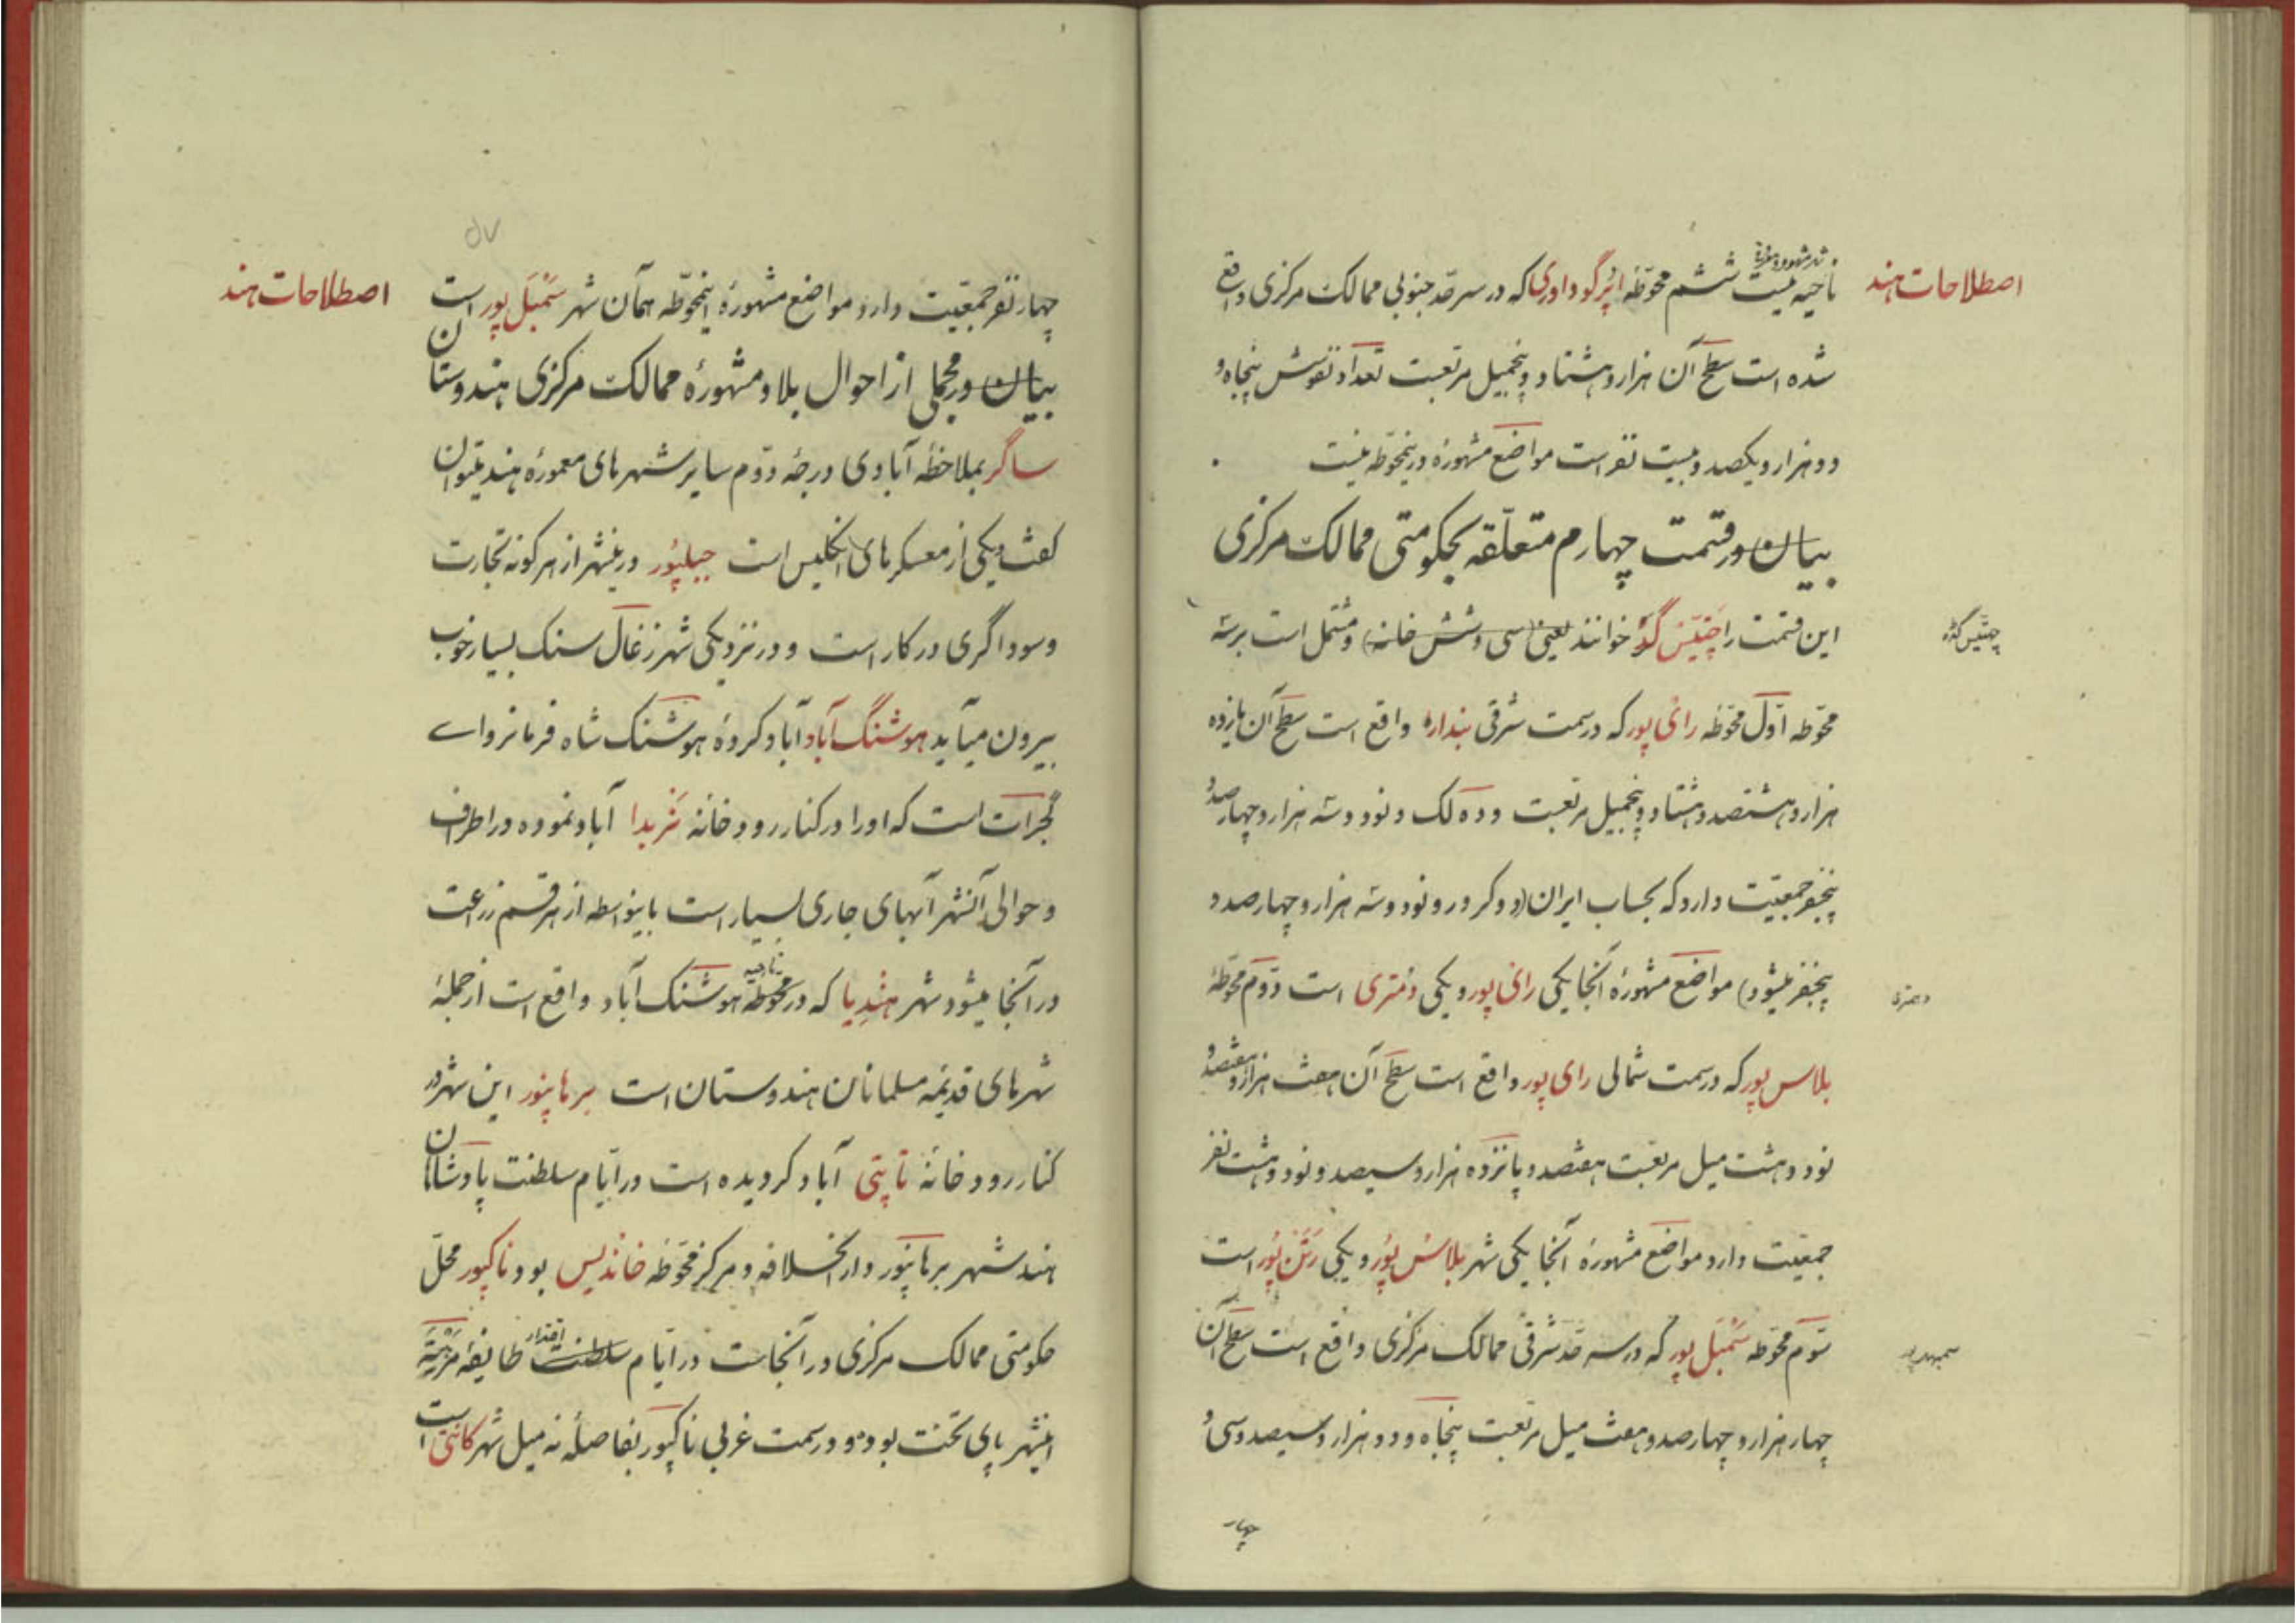 اصطلاحات هند
ناحیه نیست ششم محوّطه اپرگوداوری که در سرحد جنوبی ممالک مرکزی واقع
شده است سطح آن هزار و هشتاد و پنجمیل مربعست تعداد نفوسش پنجاه و
دو هزار و یکصد و بیست نفر است مواضع مشهورهٔ در ینمحوّطه نیست
بیان در قسمت چهارم متعلّقه بحکومتی ممالک مرکزی
این قسمت را چتّیس گڈه خوانند یعنی (سی و شش خانه) و مشتمل است بر سه
چتیس گڈه
محوّطه اوّل محوّطه رائی پور که در سمت شرقی بنداره واقع است سطح آن یازده
هزار و هشتصد و هشتاد و پنجمیل مربعست و ده لک و نود و سه هزار و چهارصد و
پنجنفر جمعیّت دارد که بحساب ایران (دو کرور و نود و سه هزار و چهارصد و
پنجنفر میشود) مواضع مشهورهٔ آنجا یکی رائی پور و یکی دمتری است دوّم محوّطهٔ
بلاس پور که در سمت شمالی رای پور واقع است سطح آن هفت هزار و هفتصد و
نود و هشت میل مربعست هفتصد و پانزده هزار و سیصد و نود و هشت نفر
جمعیّت دارد مواضع مشهورهٔ آنجا یکی شهر بلاس پُور و یکی رَتَن پُور است
سوّم محوّطه سَمْبَل پور که در سرحد شرقی ممالک مرکزی واقع است سطح آن
چهار هزار و چهارصد و هفت میل مربعست پنجاه و دو هزار و سیصد و سی و
چهار
۵۷
اصطلاحات هند
چهار نفر جمعیّت دارد مواضع مشهورهٔ اینمحوّطه همان شهر سَمْبَل پور است
بیان در مجملی از احوال بلاد مشهورهٔ ممالک مرکزی هندوستان
ساگر بملاحظهٔ آبادی درجهٔ دوّم سایر شهرهای معمورهٔ هند میتوان
گفت و یکی از معسکرهای انگلیس است جبلپُور درینشهر از هر گونه تجارت
و سوداگری در کار است و در نزدیکی شهر زغال سنک بسیار خوب
بیرون میآید هوشنگ آباد آباد کردهٔ هوشنک شاه فرمانروای
گجرات است که او را در کنار رودخانه نربدا آباد نموده در اطراف
و حوالی آنشهر آبهای جاری بسیار است باینواسطه از هر قسم زرعت
در آنجا میشود شهر هندیا که در محوطه ناحیه هوشنک آباد واقع است از جملهٔ
شهرهای قدیمهٔ مسلمانان هندوستان است برهانپور این شهر در
کنار رودخانهٔ تاپتی آباد کردیده است در ایّام سلطنت پادشاهان
هند شهر برهانپور دارالخلافه و مرکز محوّطه خاندیس بود ناکپور محلّ
حکومتی ممالک مرکزی در آنجاست در ایّام سلطنت اقتدار طایفهٔ مرهته
اینشهر پای تخت بود و در سمت غربی ناکپور بفاصلهٔ نه میل شهر کانتی است